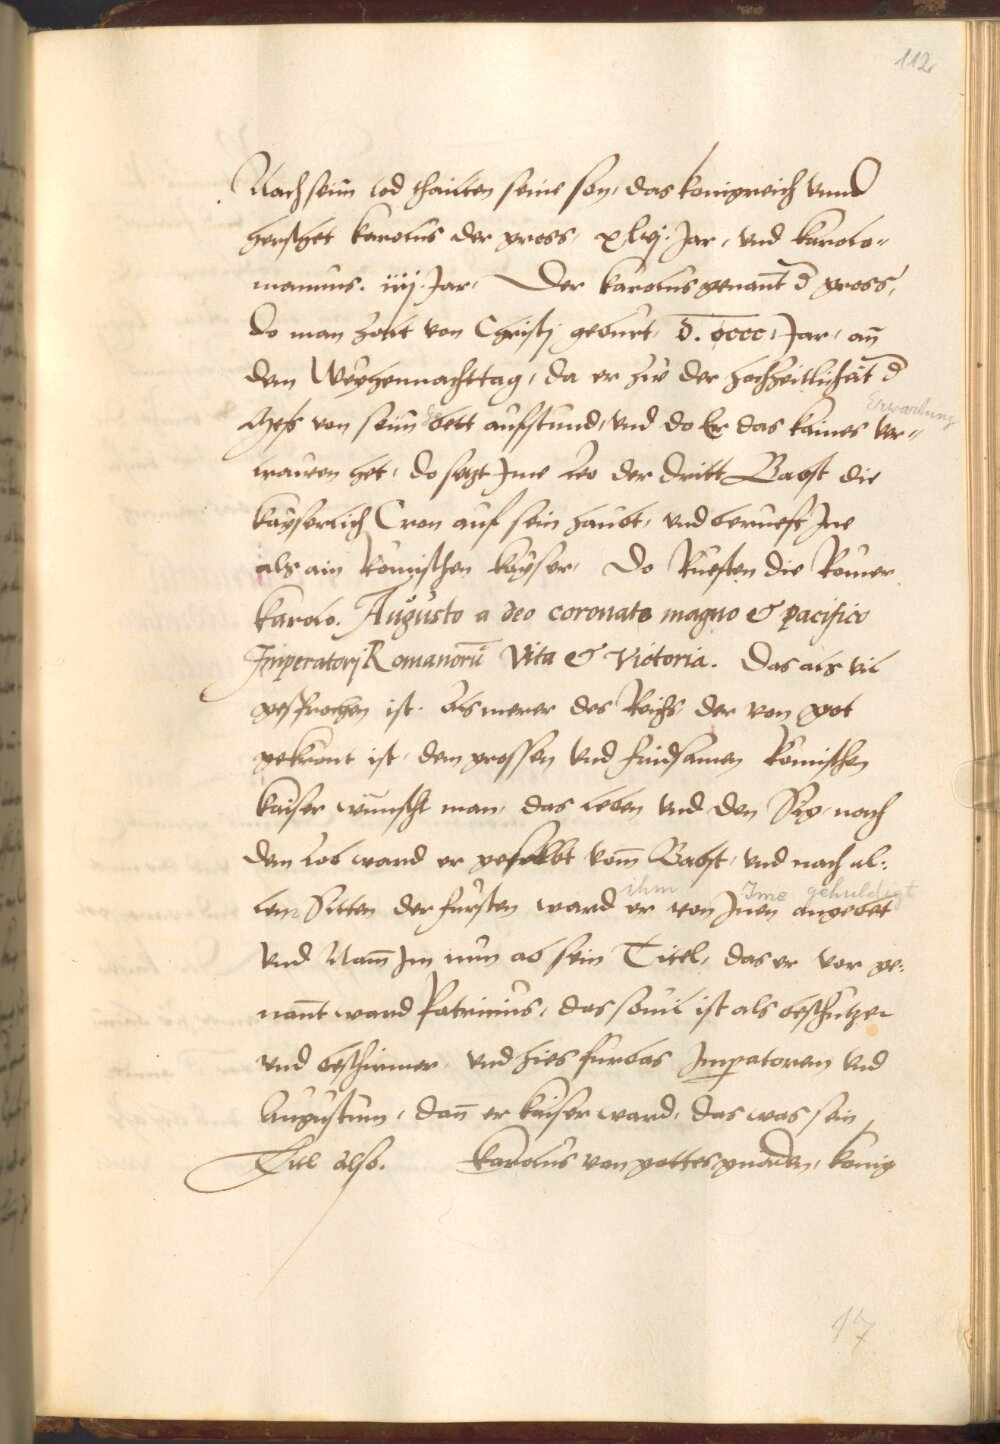 112
Nach seim tod thailten seine son, das konigreich vnnd
herschet Karolus der gross, xlvj. Jar, vnd Karolo-
mannus. iiij. Jar, Der Karolus genant d gross,
do man zalt von Christj geburt, d. cccc, Jar, an
dem Weyhennachttag, da er zw der hochzeitlichait d
Erwartung
Mess von seim bett aufstund, vnd do Er das kaines ver-
trawen het, do setzt Jme Leo der dritt Babst die
kayserlich Cron auf sein haubt, vnd berueft Jne
als ain Romischen kayser, Do Rueften die Romer
Karolo. Augusto a deo coronato magno & pacifico
Imperatorj Romanorū Vita & Victoria. Das als vil
gesprochen ist. Als merer des Reichs der von got
gekront ist, dem grossen vnd fridsamen Romischen
kaiser wunscht man, das leben vnd den Sig, nach
dem lob ward er geselbt vom Babst, vnd nach al-
ihm Jme gehuldigt
lem Sitten der fursten ward er von Jnen angebet
vnd Nam Jm nun ab sein Titel, das er vor ge-
nant ward Patricius, das souil ist als beschutzer
vnd beschirmer, vnd hies furbas Jmpatorem vnd
Augustum, dann er kaiser ward, das was sein
Titl also. Karolus von gottes gnaden, konig
17